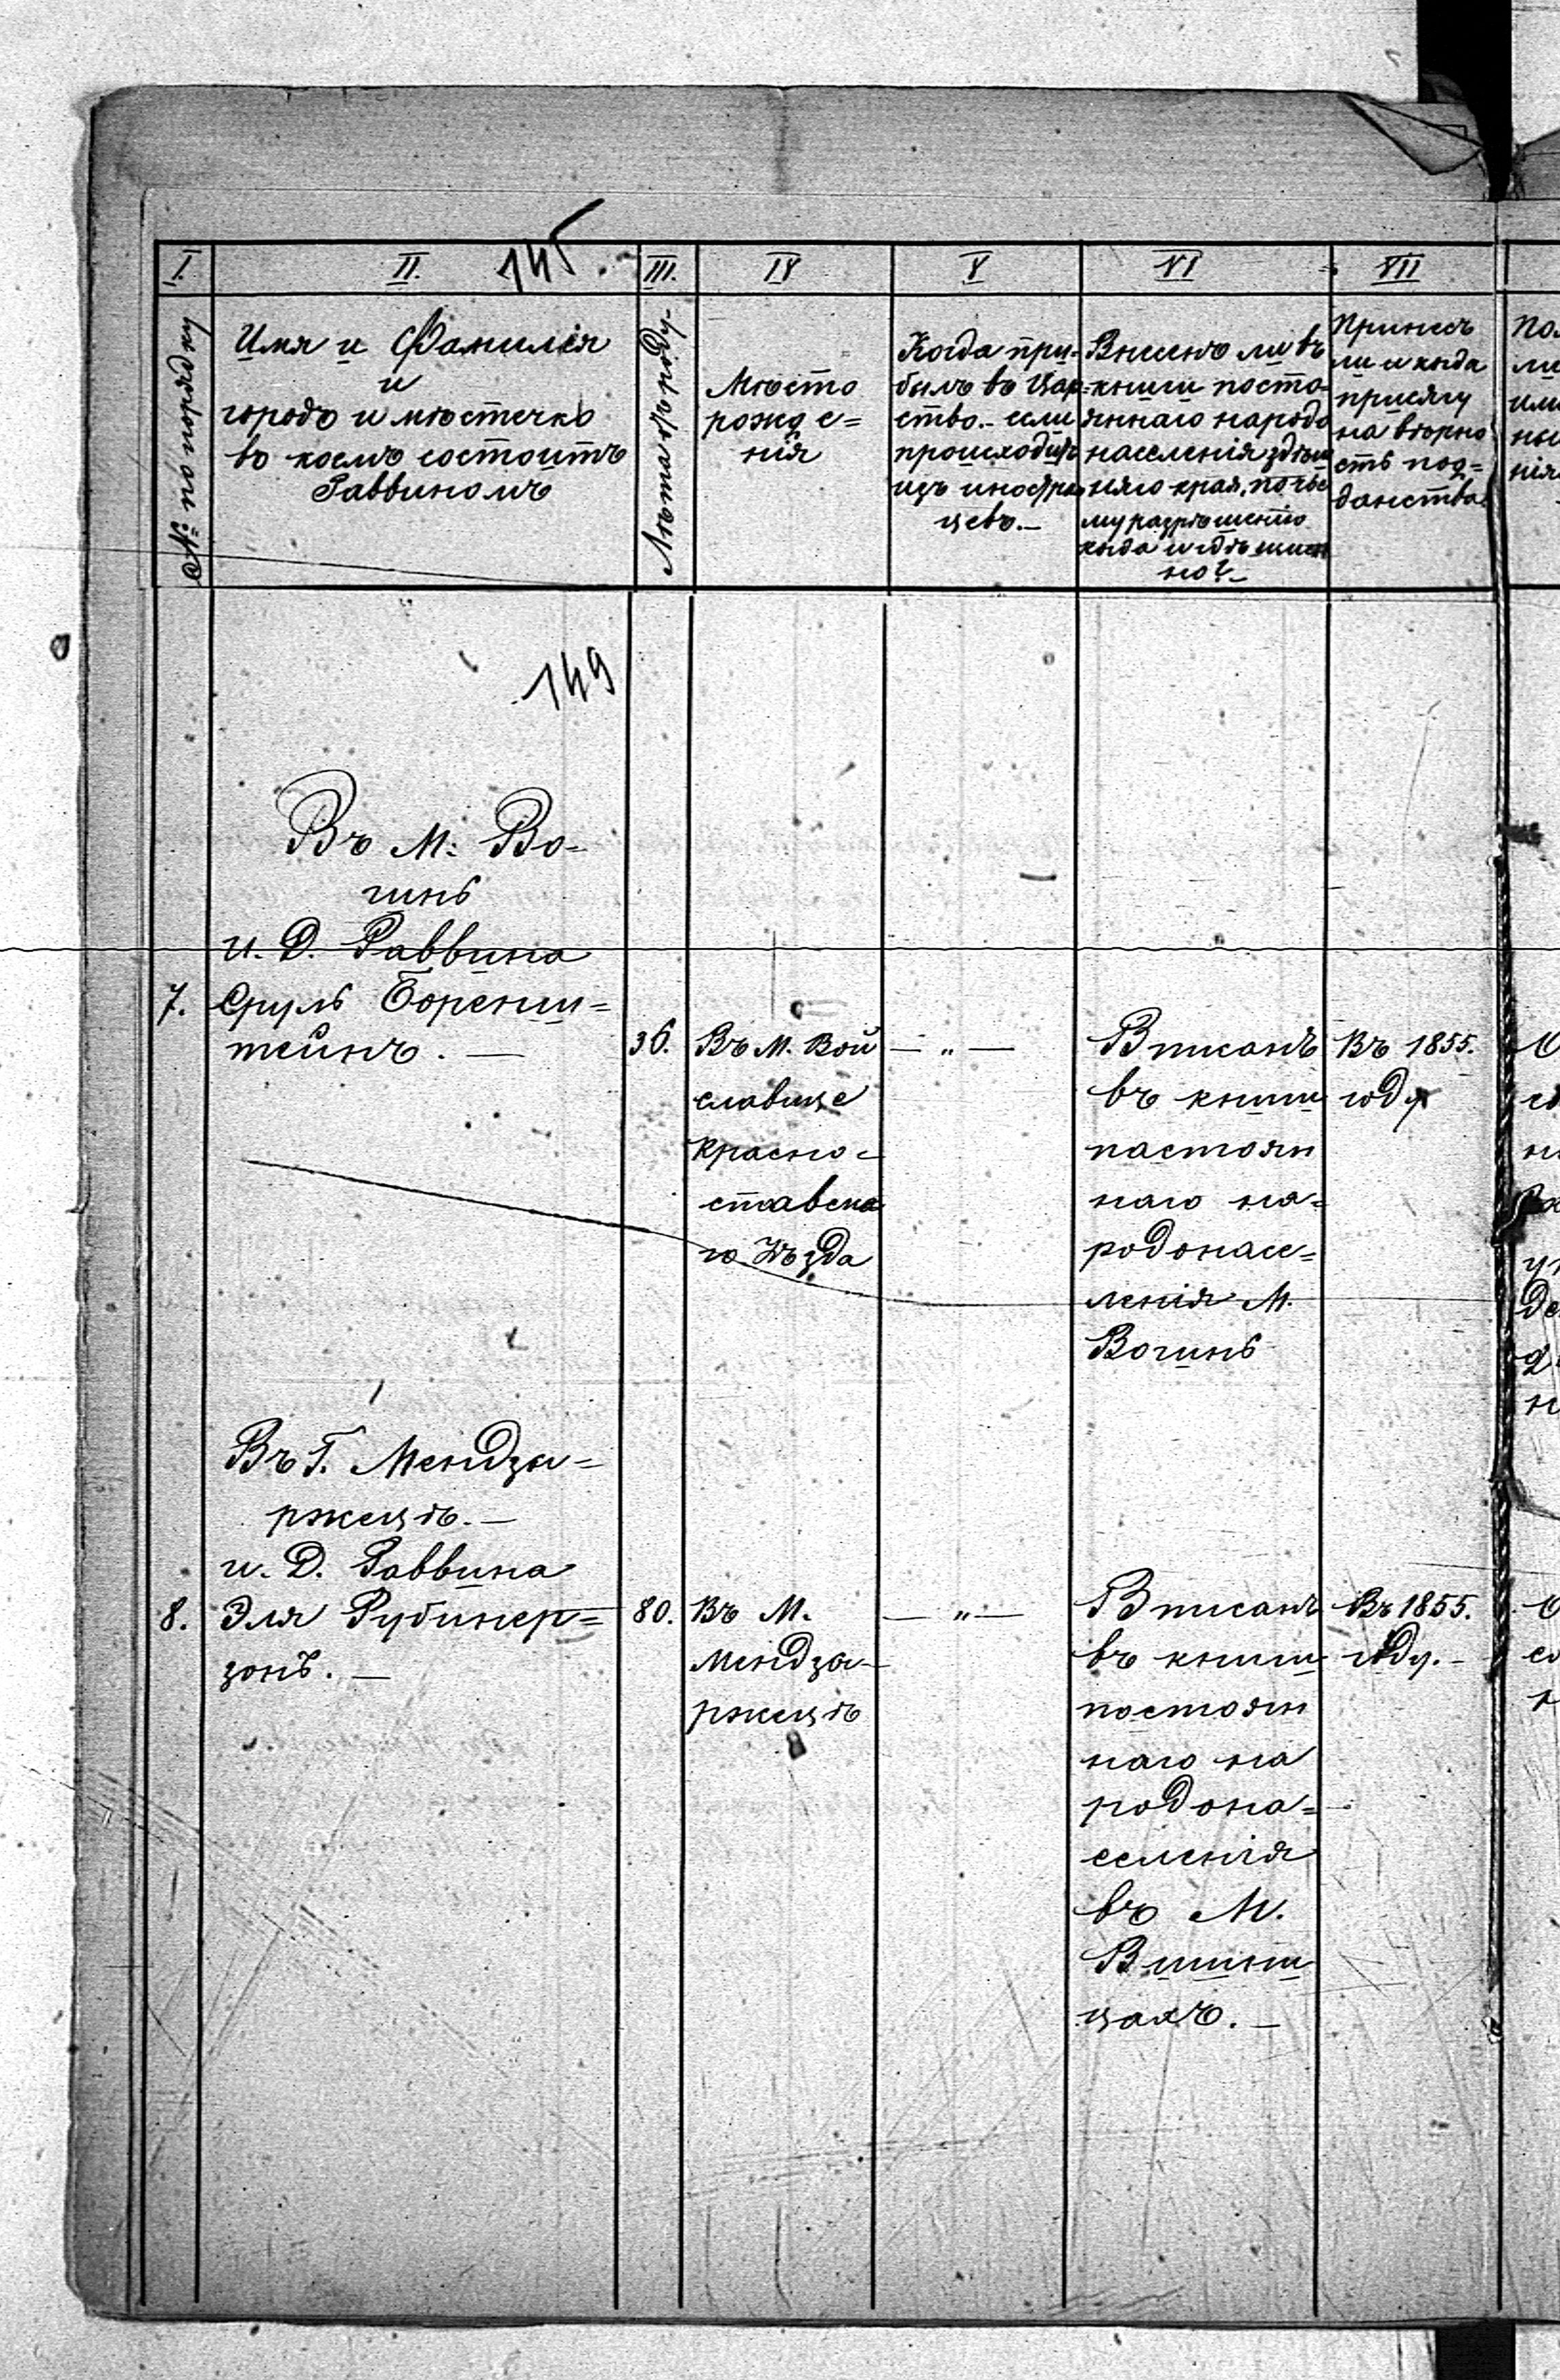 145.
I.
II.
III.
IV
V
VI
VII
№ по порядку
Имя и Фамилія
и
городъ и мѣстечко
въ коемъ состоитъ
Раввиномъ
Лѣта отъ роду
Мѣсто
рожде=
нія
Когда при=
былъ въ Цар=
ство. если
происходитъ
изъ иностран
цевъ.—
Внесенъ ли въ
книги посто=
яннаго народо
населенія здѣш
няго края, по чье
му разрѣшенію
когда и гдѣ именн
но?—
Принесъ
ли и когда
присягу
на вѣрно
сть под=
данства
149
Въ м: Во-
гинь
и. Д. Раввина
7. Сруль Боренш=
тейнъ. —
36.
Въ М. Вой
славице
Красно=
ставска
го Уѣзда
— „ —
Вписанъ
въ книги
пастоян
наго на=
родонасе=
ленія М.
Вогинь
Въ 1855.
году
Въ Г. Мендзы-
ржецѣ.—
и. Д. Раввина
8. Эля Рубинер=
зонъ. —
80.
Въ М.
Мендзы-
ржецѣ
— „ —
Вписанъ
въ книги
постоян
наго на
родона=
селенія
въ М.
Вишни
цахъ. —
Въ 1855.
году. -